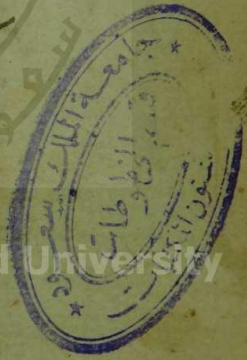 جامعة الملك سعود
قسم المخطوطات
شئون المكتبات
University